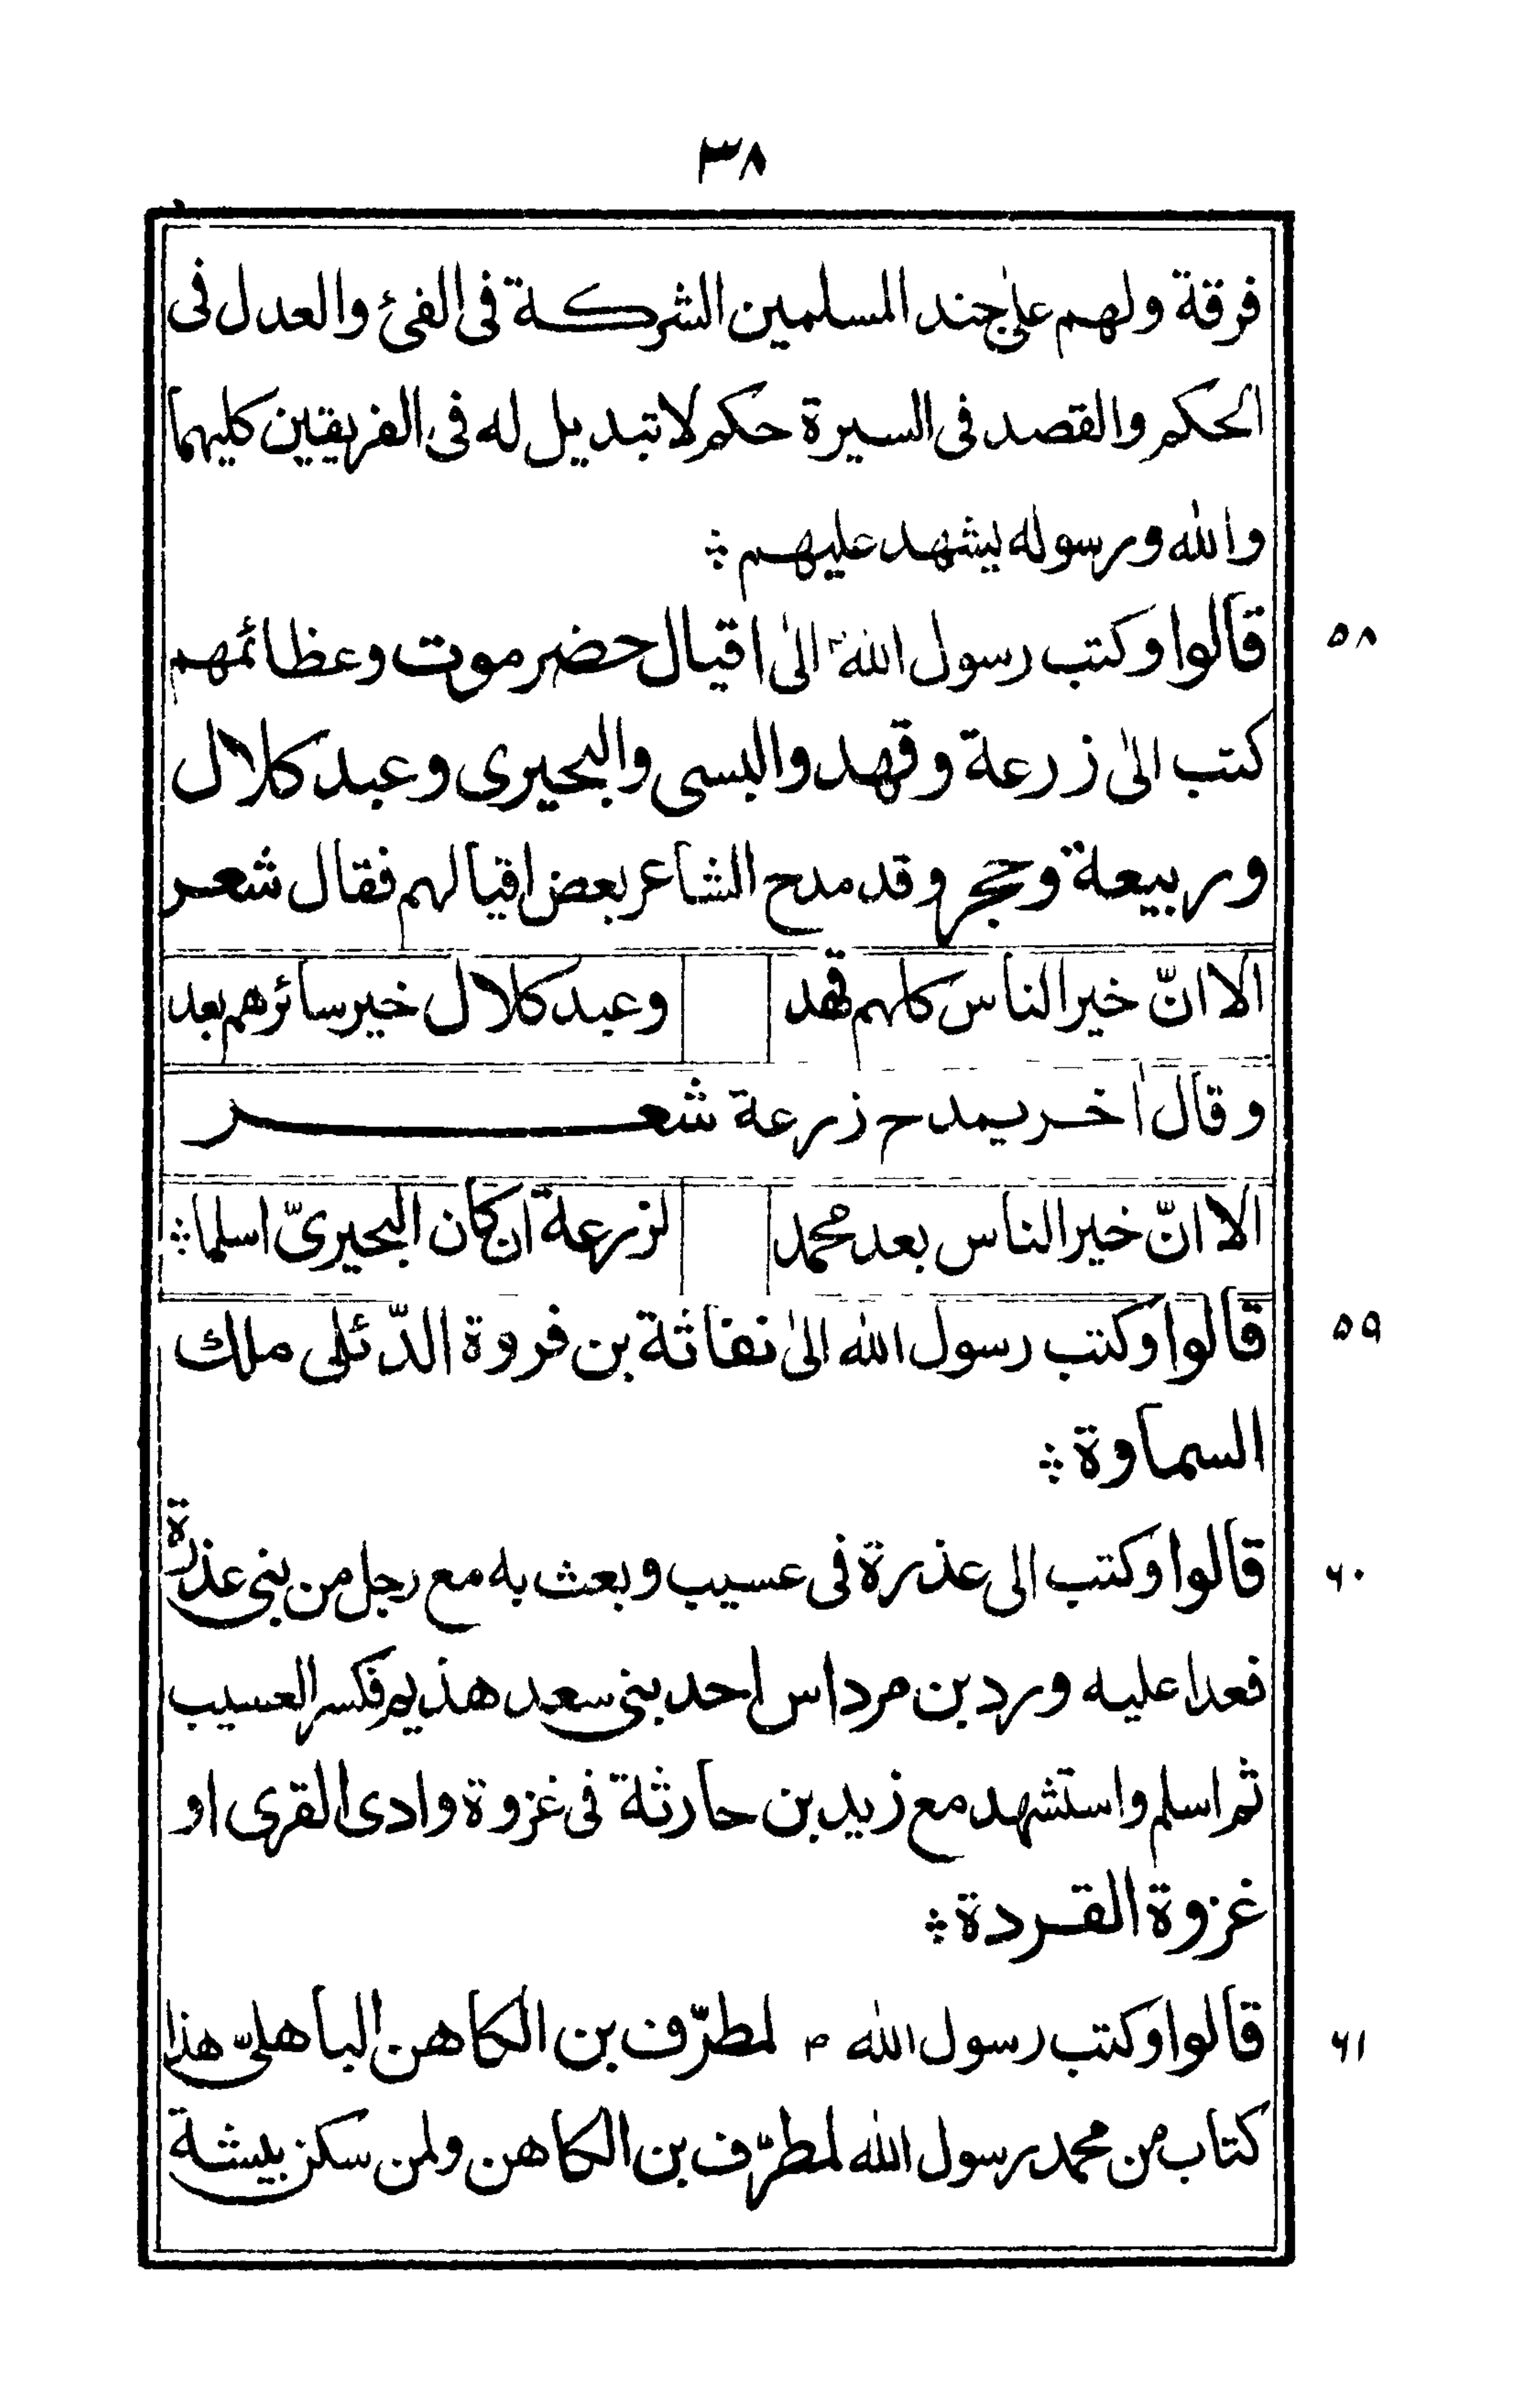 ٣٨
فرقة ولهم على جند المسلمين الشركة فى الفئ والعدل فى
الحكم والقصد فى السيرة حكم لا تبديل له فى الفريقين كليهما
والله ورسوله يشهد عليهم ؞
٥٨ قالوا وكتب رسول الله ؐ الىٰ اقيال حضرموت وعظائمهم
كتب الىٰ زرعة وقهد والبسى والبحيرى وعبد كلال
وربيعة وحجر وقد مدح الشاعر بعض اقيالهم فقال شعر
الا انّ خير الناس كلهم قهد وعبد كلال خير سائرهم بعد
وقال اٰخر يمدح زرعة شعر
الا انّ خير الناس بعد محمد لزرعة ان كان البحيرىّ اسلما ؞
٥٩ قالوا وكتب رسول الله الىٰ نفاثة بن فروة الدّئلى ملك
السماوة ؞
٦٠ قالوا وكتب الى عذرة فى عسيب وبعث به مع رجل من بنى عذرة
فعدا عليه ورد بن مرداس احد بنى سعد هذيم فكسر العسيب
ثم اسلم واستشهد مع زيد بن حارثة فى غزوة وادى القرى او
غزوة القردة ؞
٦١ قالوا وكتب رسول الله م لمطرّف بن الكاهن الباهلىّ هذا
كتاب من محمد رسول الله لمطرّف بن الكاهن ولمن سكن بيشة